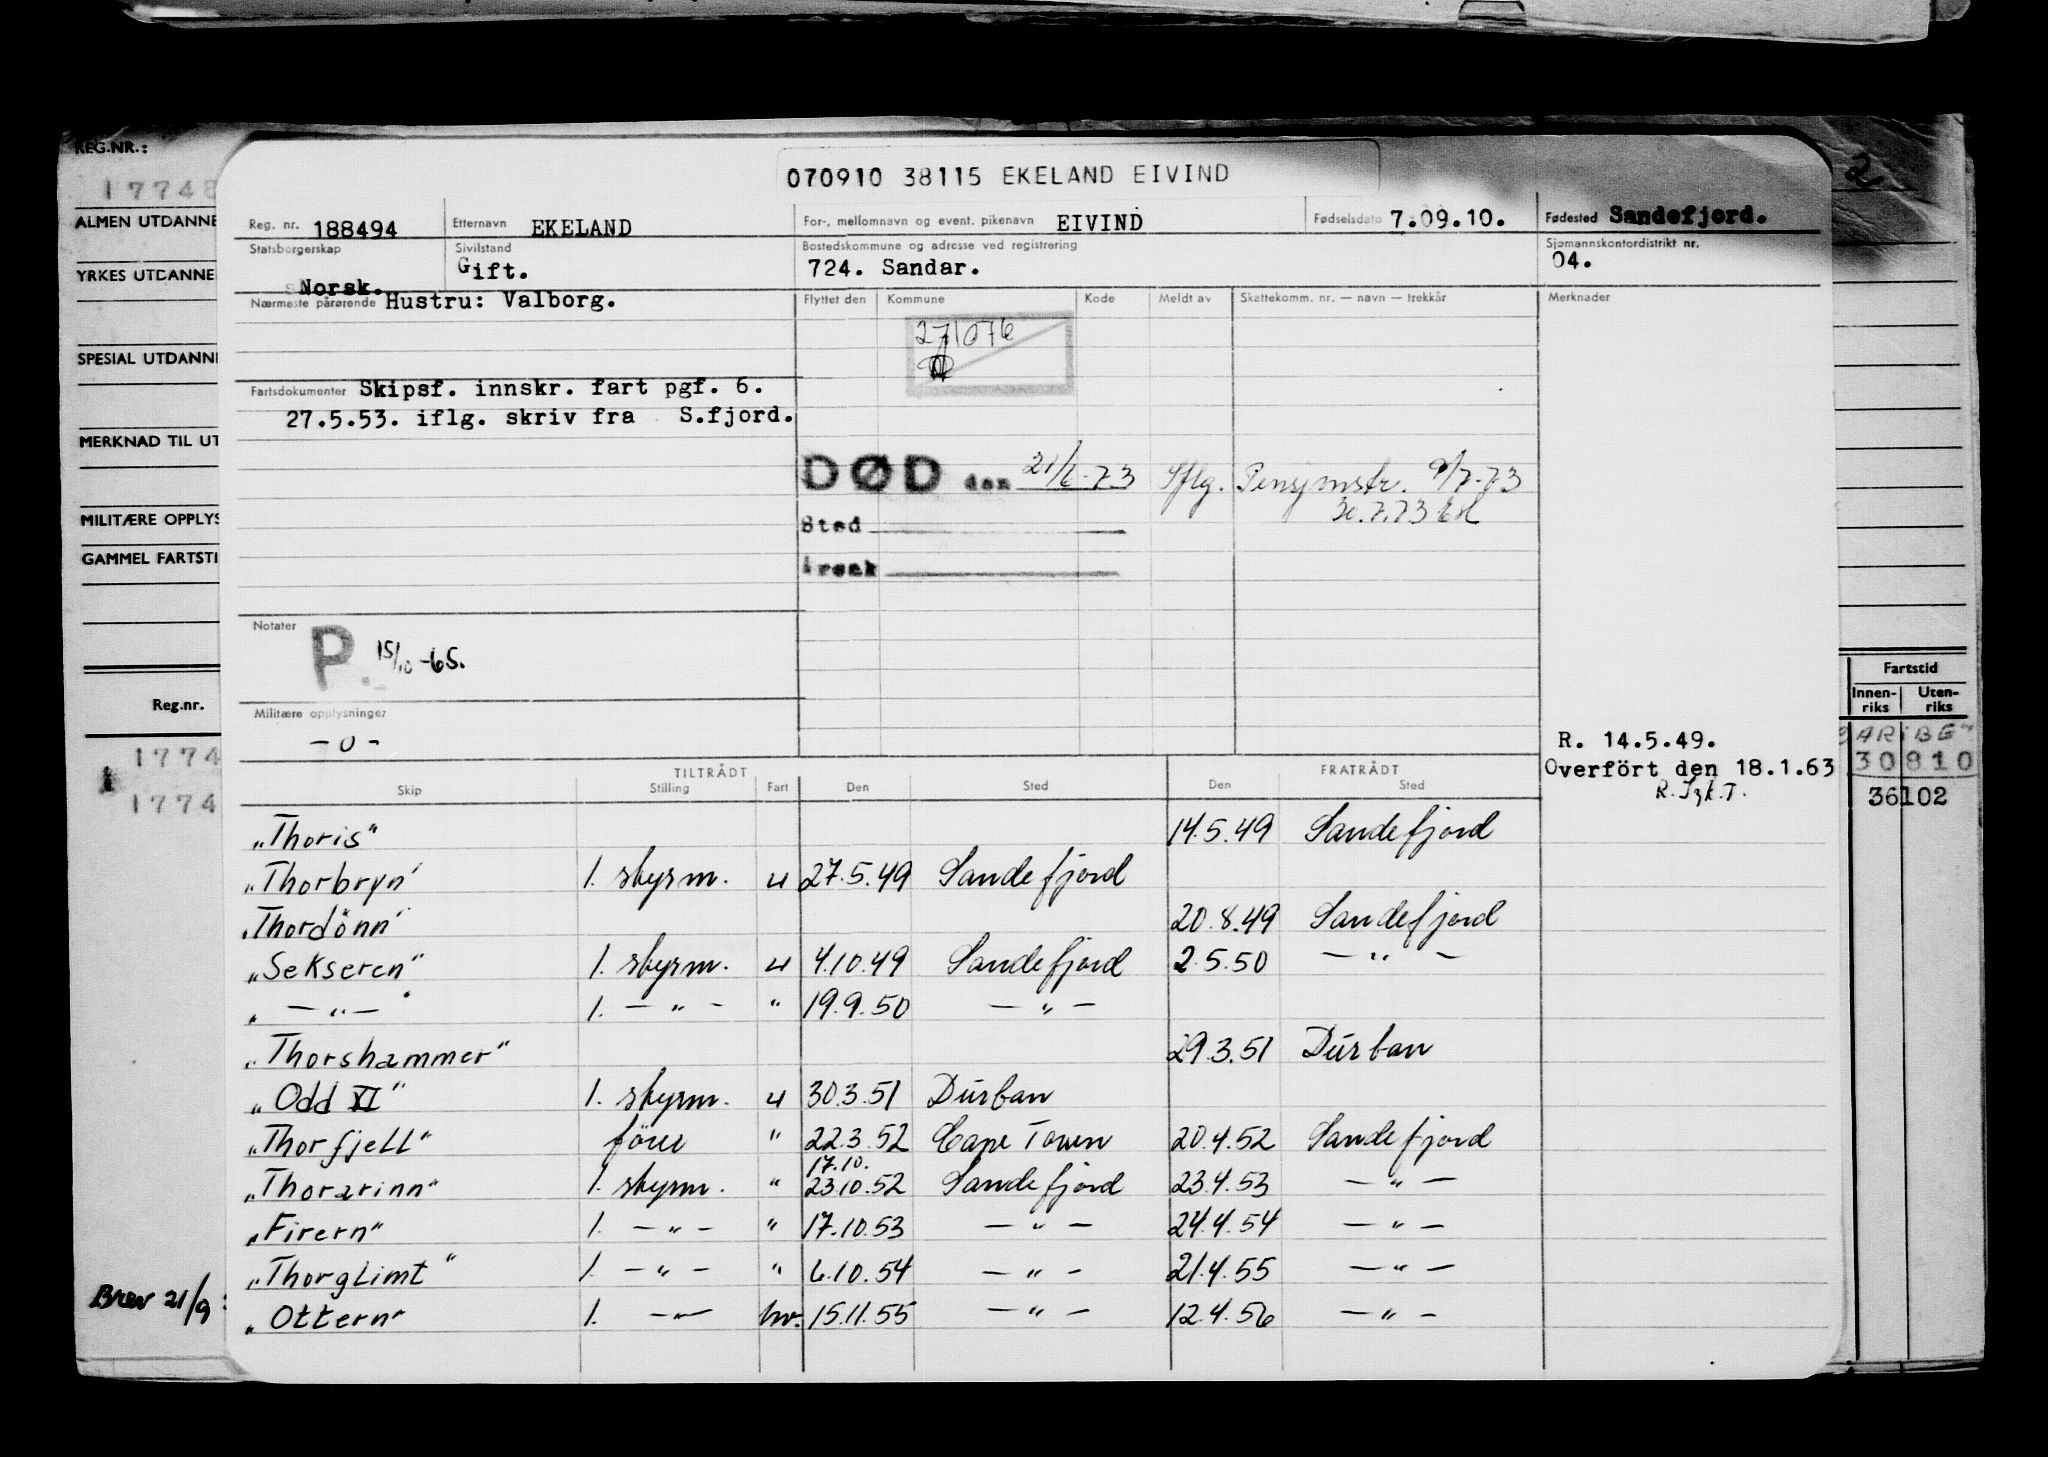 REG.NR.:
17748
ALMEN UTDANNE
YRKES UTDANNE
SPESIAL UTDANN
MERKNAD TIL UT
MILITÆRE OPPLYS
GAMMEL FARTSTI
Reg.nr.
1774
1774
Brev 21/9
2
070910 38115 EKELAND EIVIND
Reg. nr. 188494 Etternavn EKELAND For-, mellomnavn og event. pikenavn EIVIND Fødselsdato 7.09.10. Fødested Sandefjord.
Statsborgerskap Norsk. Sivilstand Gift. Bostedskommune og adresse ved registrering 724. Sandar. Sjømannskontordistrikt nr. 04.
Nærmeste pårørende Hustru: Valborg. Flyttet den Kommune Kode Meldt av Skattekomm. nr. — navn — trekkår Merknader
271076
Fartsdokumenter Skipsf. innskr. fart pgf. 6.
27.5.53. iflg. skriv fra S.fjord.
DØD den 21/6-73 Iflg. Pensjonstr. 9/7-73
30.7.73
Sted
Årsak
Notater
P. 15/10-65.
Militære opplysninger
- 0 -
R. 14.5.49.
Overført den 18.1.63
TILTRÅDT FRATRÅDT
Skip Stilling Fart Den Sted Den Sted
"Thoris" 14.5.49 Sandefjord
"Thorbryn" 1. styrm. u 27.5.49 Sandefjord
"Thordönn" 20.8.49 Sandefjord
"Sekseren" 1. styrm. u 4.10.49 Sandefjord 2.5.50 — " —
" — " — " 1. — " — " 19.9.50 — " —
"Thorshammer" 29.3.51 Durban
"Odd XI" 1. styrm. u 30.3.51 Durban
"Thorfjell" förer " 22.3.52 Cape Town 20.4.52 Sandefjord
17.10.
"Thorarinn" 1. styrm. " 23.10.52 Sandefjord 23.4.53 — " —
"Firern" 1. — " — " 17.10.53 — " — 24.4.54 — " —
"Thorglimt" 1. — " — " 6.10.54 — " — 21.4.55 — " —
"Ottern" 1. — " — hv. 15.11.55 — " — 12.4.56 — " —
Fartstid
Innen-riks Uten-riks
30810
36102